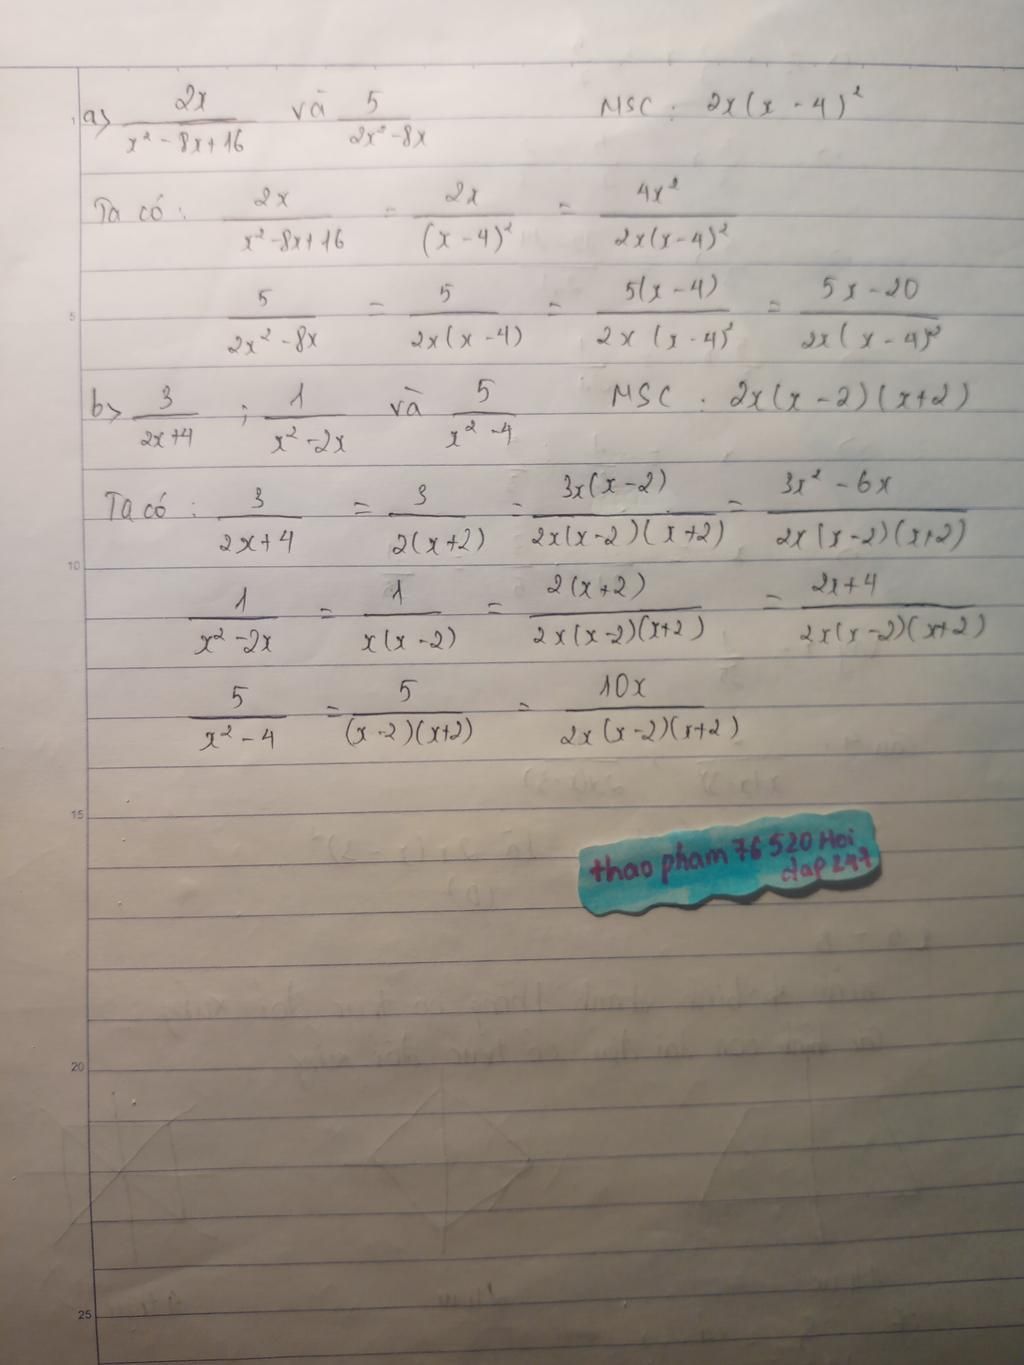 a> 2x/(x² - 8x + 16) và 5/(2x² - 8x) MSC : 2x(x - 4)²
Ta có : 2x/(x² - 8x + 16) = 2x/(x - 4)² = 4x²/2x(x - 4)²
5/(2x² - 8x) = 5/2x(x - 4) = 5(x - 4)/2x(x - 4)² = (5x - 20)/2x(x - 4)²
b> 3/(2x + 4) ; 1/(x² - 2x) và 5/(x² - 4) MSC : 2x(x - 2)(x + 2)
Ta có : 3/(2x + 4) = 3/2(x + 2) = 3x(x - 2)/2x(x - 2)(x + 2) = (3x² - 6x)/2x(x - 2)(x + 2)
1/(x² - 2x) = 1/x(x - 2) = 2(x + 2)/2x(x - 2)(x + 2) = (2x + 4)/2x(x - 2)(x + 2)
5/(x² - 4) = 5/(x - 2)(x + 2) = 10x/2x(x - 2)(x + 2)
thao pham 76 520 Hoi
dap 247
1
5
10
15
20
25